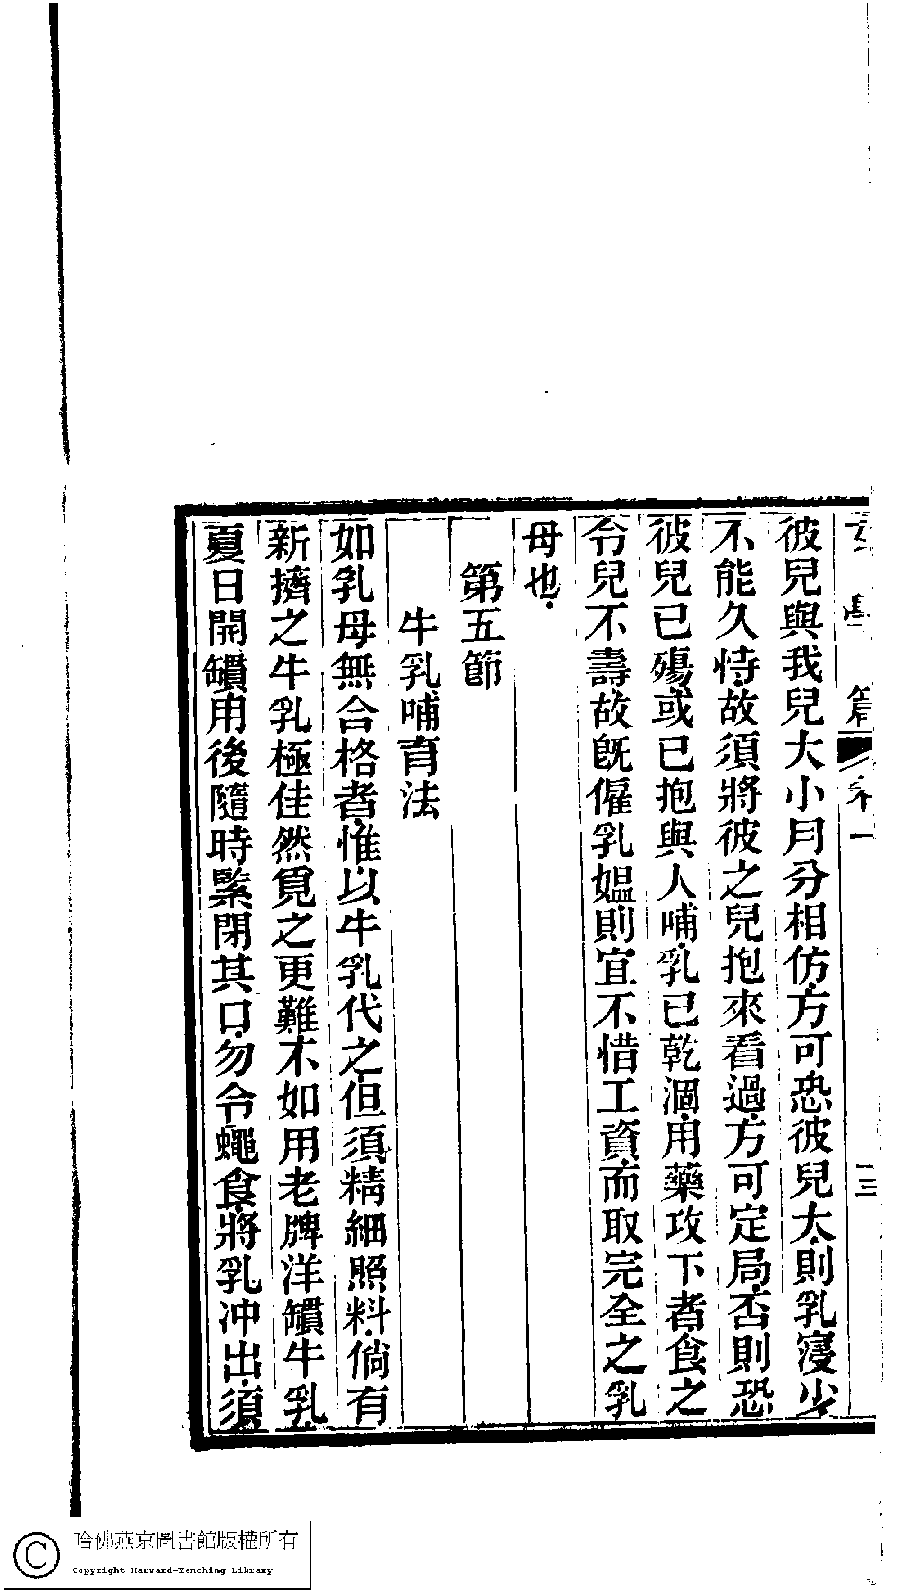 學 篇 卷一 三
彼兒與我兒大小月分相仿方可恐彼兒大則乳寖少
不能久恃故須將彼之兒抱來看過方可定局否則恐
彼兒已殤或已抱與人哺乳已乾涸用藥攻下者食之
令兒不壽故旣僱乳媼則宜不惜工資而取完全之乳
母也
第五節
牛乳哺育法
如乳母無合格者惟以牛乳代之但須精細照料倘有
新擠之牛乳極佳然覓之更難不如用老牌洋罐牛乳
夏日開罐用後隨時緊閉其口勿令蠅食將乳冲出須
哈佛燕京圖書館版權所有
Copyright Harvard-Yenching Library